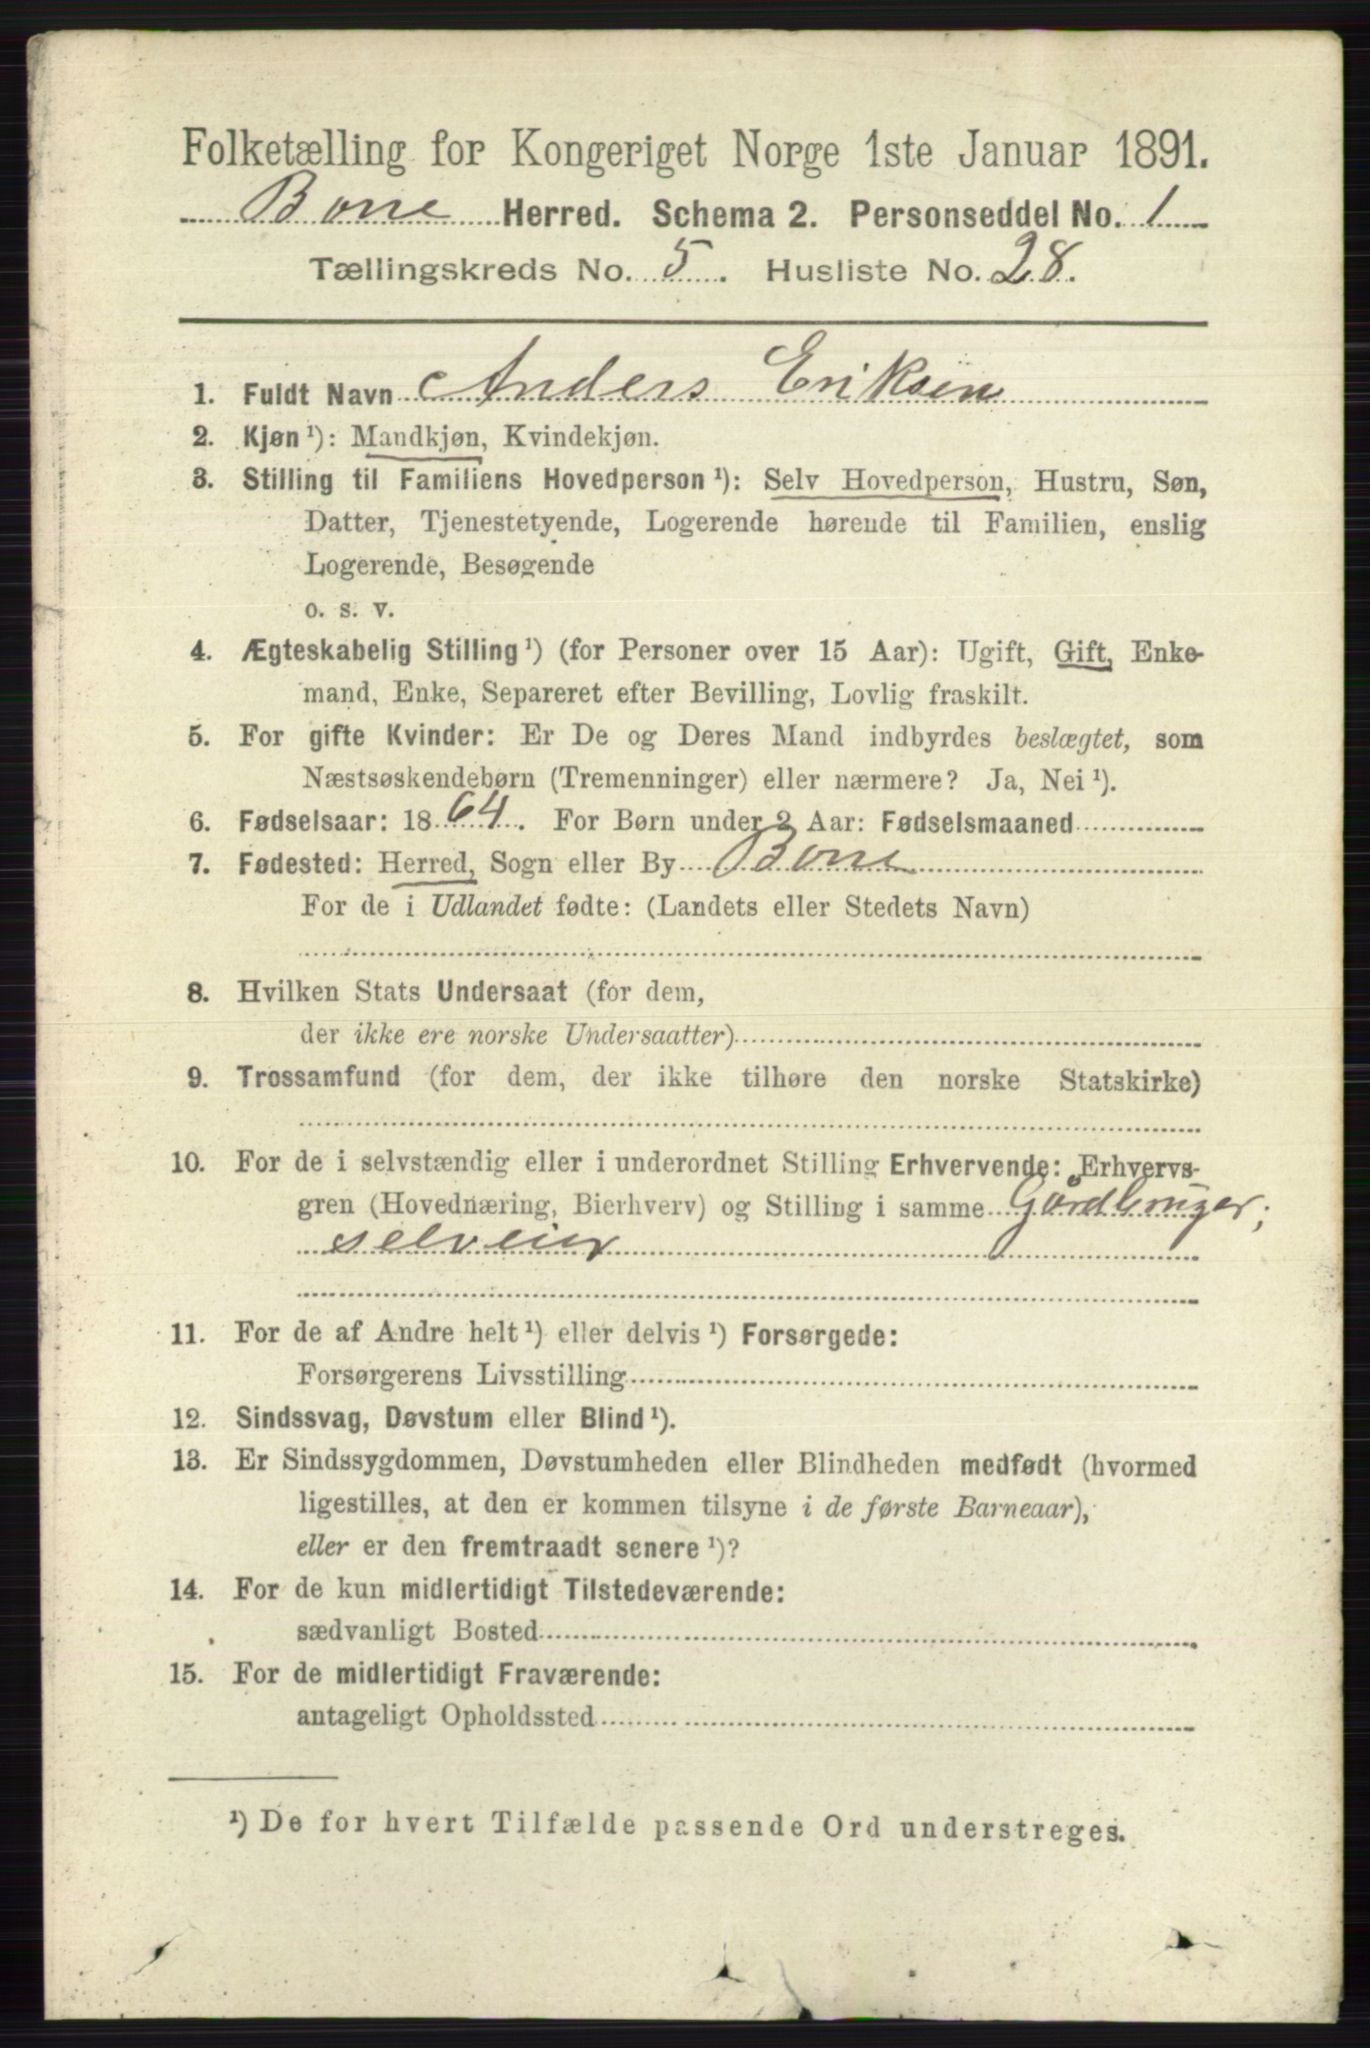 Folketælling for Kongeriget Norge 1ste Januar 1891.
Borre Herred. Schema 2. Personseddel No. 1
Tællingskreds No. 5. Husliste No. 28.
1. Fuldt Navn Anders Eriksen
2. Kjøn ¹): Mandkjøn, Kvindekjøn.
3. Stilling til Familiens Hovedperson ¹): Selv Hovedperson, Hustru, Søn,
Datter, Tjenestetyende, Logerende hørende til Familien, enslig
Logerende, Besøgende
o. s. v.
4. Ægteskabelig Stilling ¹) (for Personer over 15 Aar): Ugift, Gift, Enke-
mand, Enke, Separeret efter Bevilling, Lovlig fraskilt.
5. For gifte Kvinder: Er De og Deres Mand indbyrdes beslægtet, som
Næstsøskendebørn (Tremenninger) eller nærmere? Ja, Nei ¹).
6. Fødselsaar: 1864. For Børn under 2 Aar: Fødselsmaaned
7. Fødested: Herred, Sogn eller By Borre
For de i Udlandet fødte: (Landets eller Stedets Navn)
8. Hvilken Stats Undersaat (for dem,
der ikke ere norske Undersaatter)
9. Trossamfund (for dem, der ikke tilhøre den norske Statskirke)
10. For de i selvstændig eller i underordnet Stilling Erhvervende: Erhvervs-
gren (Hovednæring, Bierhverv) og Stilling i samme Gårdbruger;
selveier
11. For de af Andre helt ¹) eller delvis ¹) Forsørgede:
Forsørgerens Livsstilling
12. Sindssvag, Døvstum eller Blind ¹).
13. Er Sindssygdommen, Døvstumheden eller Blindheden medfødt (hvormed
ligestilles, at den er kommen tilsyne i de første Barneaar),
eller er den fremtraadt senere ¹)?
14. For de kun midlertidigt Tilstedeværende:
sædvanligt Bosted
15. For de midlertidigt Fraværende:
antageligt Opholdssted
¹) De for hvert Tilfælde passende Ord understreges.